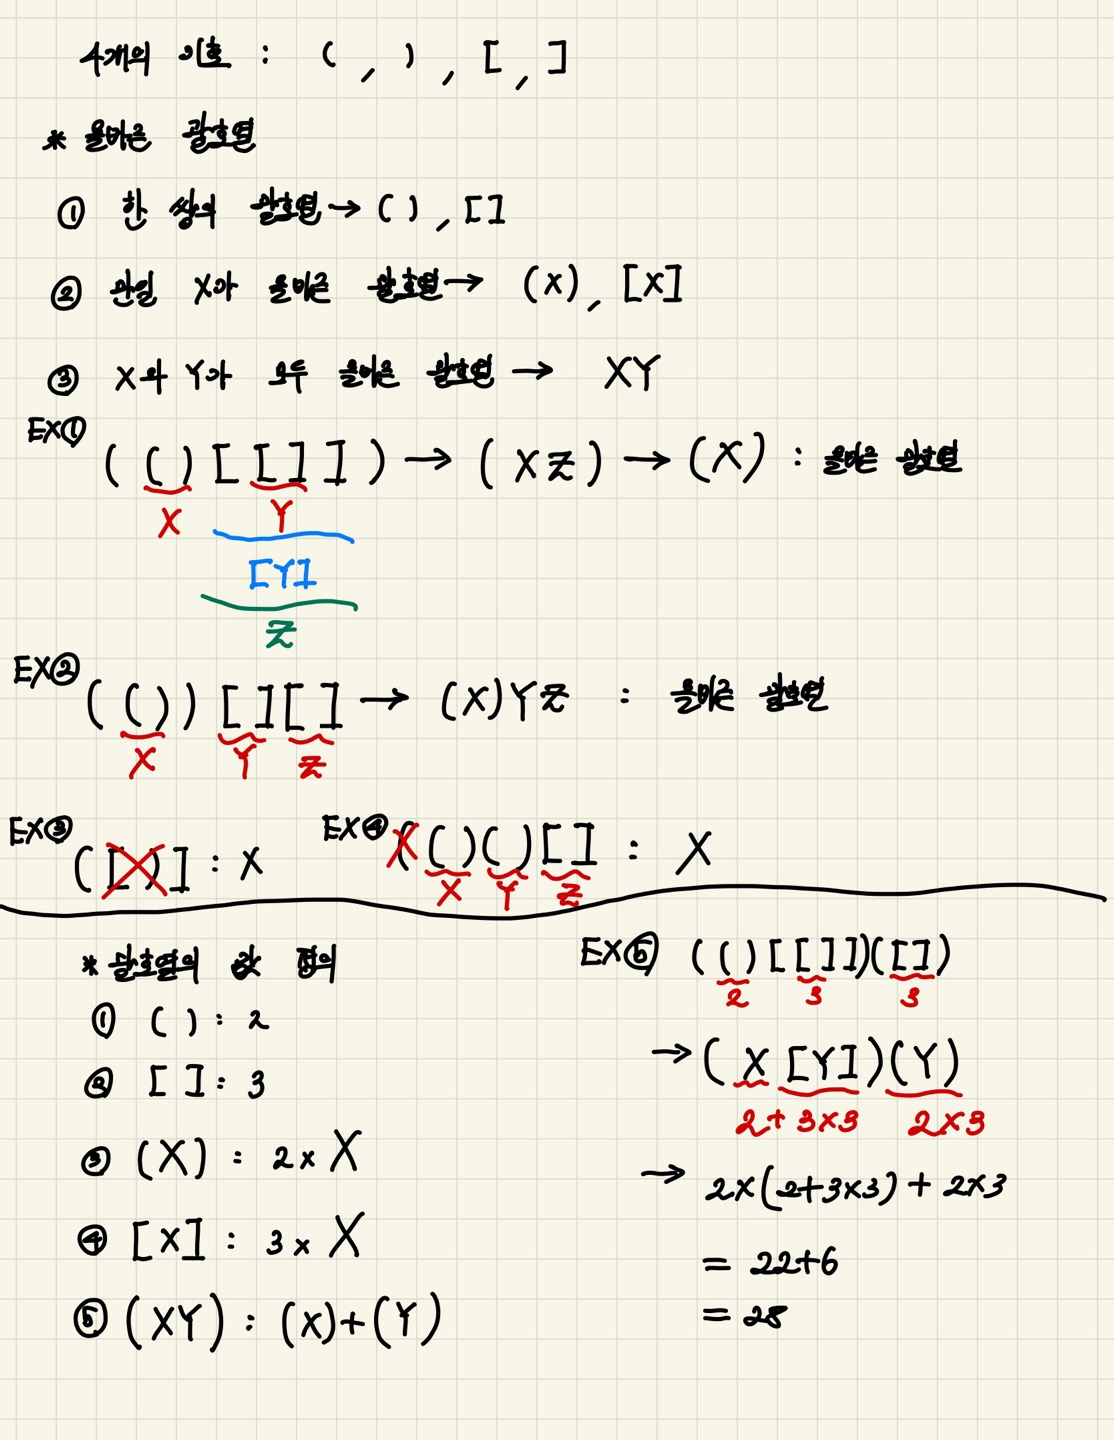 4개의 기호 : ( , ) , [ , ]
* 올바른 괄호열
① 한 쌍의 괄호열 → ( ) , [ ]
② 만일 X가 올바른 괄호열 → (X) , [X]
③ X와 Y가 모두 올바른 괄호열 → XY
EX①
( ( ) [ [ ] ] ) → ( X Z ) → (X) : 올바른 괄호열
X Y
[Y]
Z
EX②
( ( ) ) [ ] [ ] → (X)YZ : 올바른 괄호열
X Y Z
EX③ ( [ ) ] : X
EX④ ( ( ) ( ) [ ] : X
X Y Z
* 괄호열의 값 정의
① ( ) : 2
② [ ] : 3
③ (X) : 2 × X
④ [X] : 3 × X
⑤ (XY) : (X)+(Y)
EX⑤ ( ( ) [ [ ] ] ) ( [ ] )
2 3 3
→ ( X [Y] ) (Y)
2+ 3×3 2×3
→ 2×(2+3×3) + 2×3
= 22+6
= 28